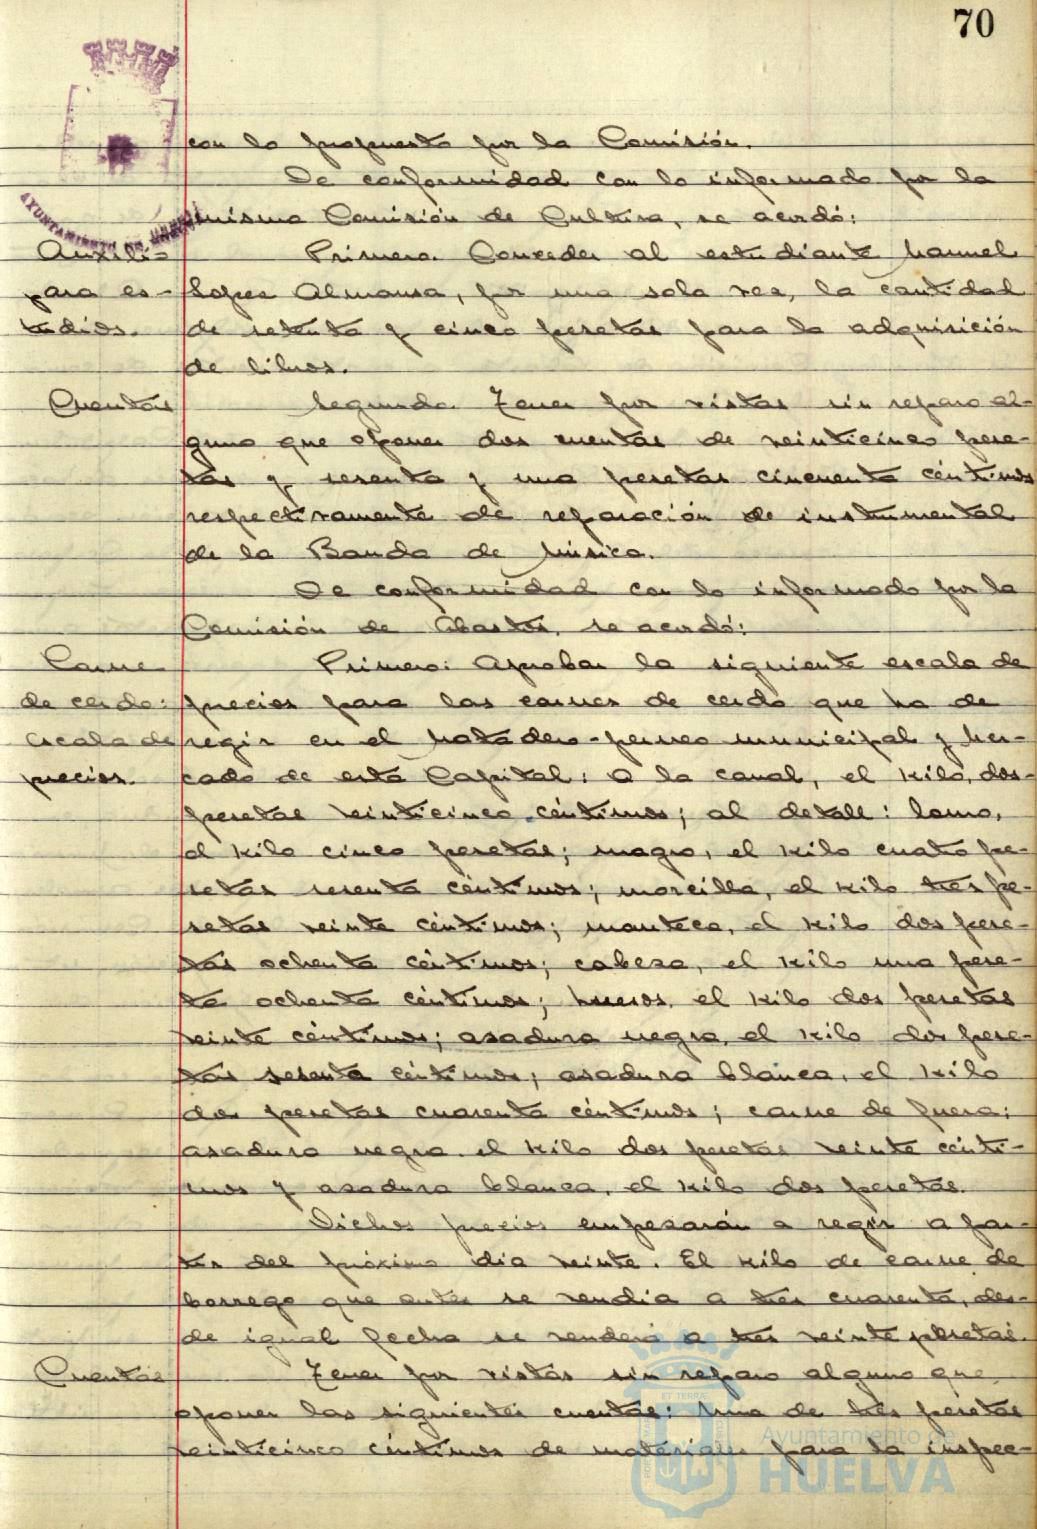 70
con lo propuesto por la Comisión.
De conformidad con lo informado por la
misma Comisión de Cultura, se acordó:
AYUNTAMIENTO DE HUELVA
Auxilio
para es-
tudios.
Primero. Conceder al estudiante Manuel
Lopez Almansa, por una sola vez, la cantidad
de setenta y cinco pesetas para la adquisición
de libros.
Cuentas
Segundo. Tener por vistas sin reparo al-
guno que oponer dos cuentas de veinticinco pese-
tas y sesenta y una pesetas cincuenta céntimos
respectivamente de reparación de instrumental
de la Banda de Música.
De conformidad con lo informado por la
Comisión de Abastos, se acordó:
Carne
de cerdo:
escala de
precios.
Primero: Aprobar la siguiente escala de
precios para las carnes de cerdo que ha de
regir en el Matadero-perneo municipal y Mer-
cado de esta Capital: a la canal, el kilo, dos
pesetas veinticinco céntimos; al detall: lomo,
el kilo cinco pesetas; magro, el kilo cuatro pe-
setas sesenta céntimos; morcilla, el kilo tres pe-
setas veinte céntimos; manteca, el kilo dos pese-
tas ochenta céntimos; cabeza, el kilo una pese-
ta ochenta céntimos; huesos, el kilo dos pesetas
veinte céntimos; asadura negra, el kilo dos pese-
tas sesenta céntimos; asadura blanca, el kilo
dos pesetas cuarenta céntimos; carne de fuera:
asadura negra el kilo dos pesetas veinte cénti-
mos y asadura blanca, el kilo dos pesetas.
Dichos precios empezarán a regir a par-
tir del próximo día veinte. El kilo de carne de
borrego que antes se vendia a tres cuarenta, des-
de igual fecha se venderá a tres veinte pesetas.
Cuentas
Tener por vistas sin reparo alguno que
oponer las siguientes cuentas: Una de tres pesetas
veinticinco céntimos de materiales para la inspec-
Ayuntamiento de
HUELVA